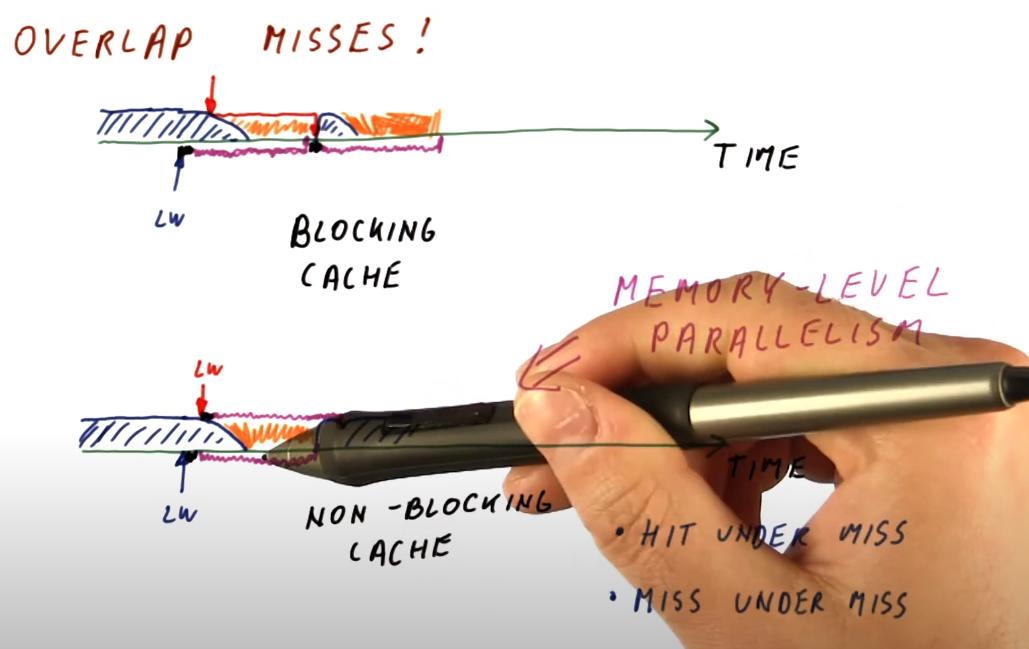 OVERLAP MISSES!
TIME
LW
BLOCKING
CACHE
MEMORY-LEVEL
PARALLELISM
LW
TIME
LW
NON-BLOCKING
CACHE
• HIT UNDER MISS
• MISS UNDER MISS